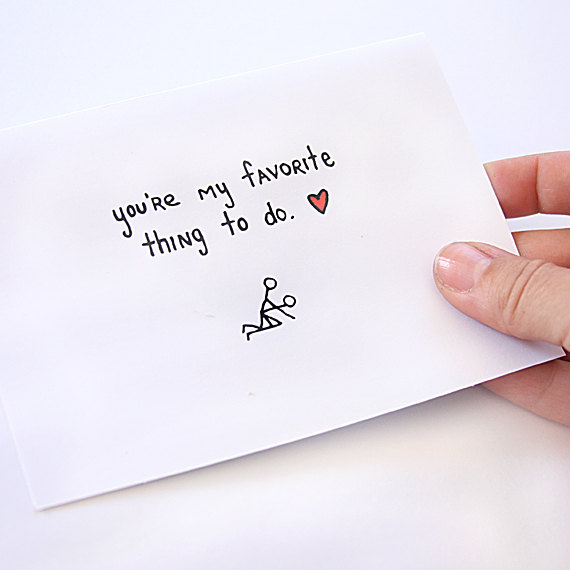 you're my favorite
thing to do. ♥